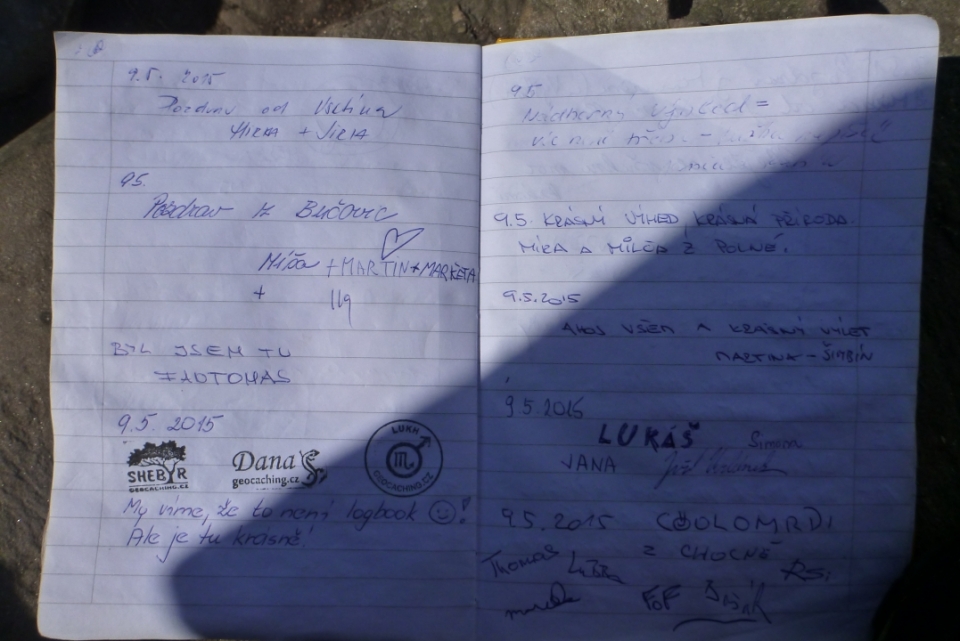 9.5. 2015
Pozdrav od Vsetína
MIRKA + JIRKA
95.
Pozdrav z Bučovic
Míša + MARTIN + MARKÉTA
+ 11q
BYL JSEM TU
9.5. 2015
SHEBYR
GEOCACHING.CZ
Dana
geocaching.cz
LUKH
GEOCACHING.CZ
My víme, že to není logbook
Ale je tu krásně!
95
Nádherný výhled =
víc není třeba -
9.5. KRÁSNÝ VÍHED KRÁSNÁ PŘÍRODA.
MÍRA A MÍLČA Z POLNÉ.
9.5.2015
AHOJ VŠEM A KRÁSNÝ VÝLET
MARTINA - ŠIMBÍN
9.5.2015
LUKÁŠ Simona
JANA
9.5.2015 COOLOMRDI
Z CHOCNĚ
Thomas
FoF